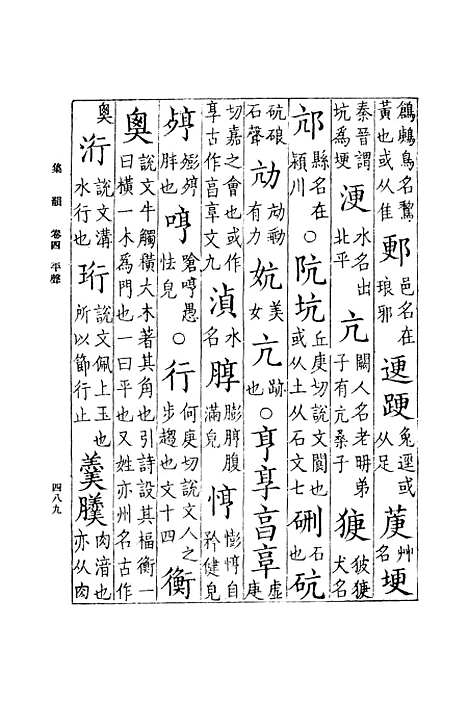 鶊鳥名鶖黃也或从隹 郠邑名在琅邪 兔逕或从足 莄艸名 埂
秦晉謂坑爲埂 浭水名出北平 亢闕人名老耼弟子有亢桑子 犬名
邟縣名在潁川 ○阬坑丘庚切說文閬也或从土从石文七 硎石也 砊
砊硠石聲 劥劥勭有力 妔美女 亢跡也 ○亨享亯虛庚
切嘉之會也或作享古作亯文九 湞水名 脝膨脝腹滿皃 悙憉悙自矜健皃
胖也 哼愚怯皃 ○行何庚切說文人之步趨也文十四 衡
奧說文牛觸橫大木著其角也引詩設其福衡一曰橫一木爲門也一曰平也又姓亦州名古作
奧 洐說文溝水行也 珩說文佩上玉也所以節行止 羹肉湆也亦从肉
集韻 卷四 平聲
四八九